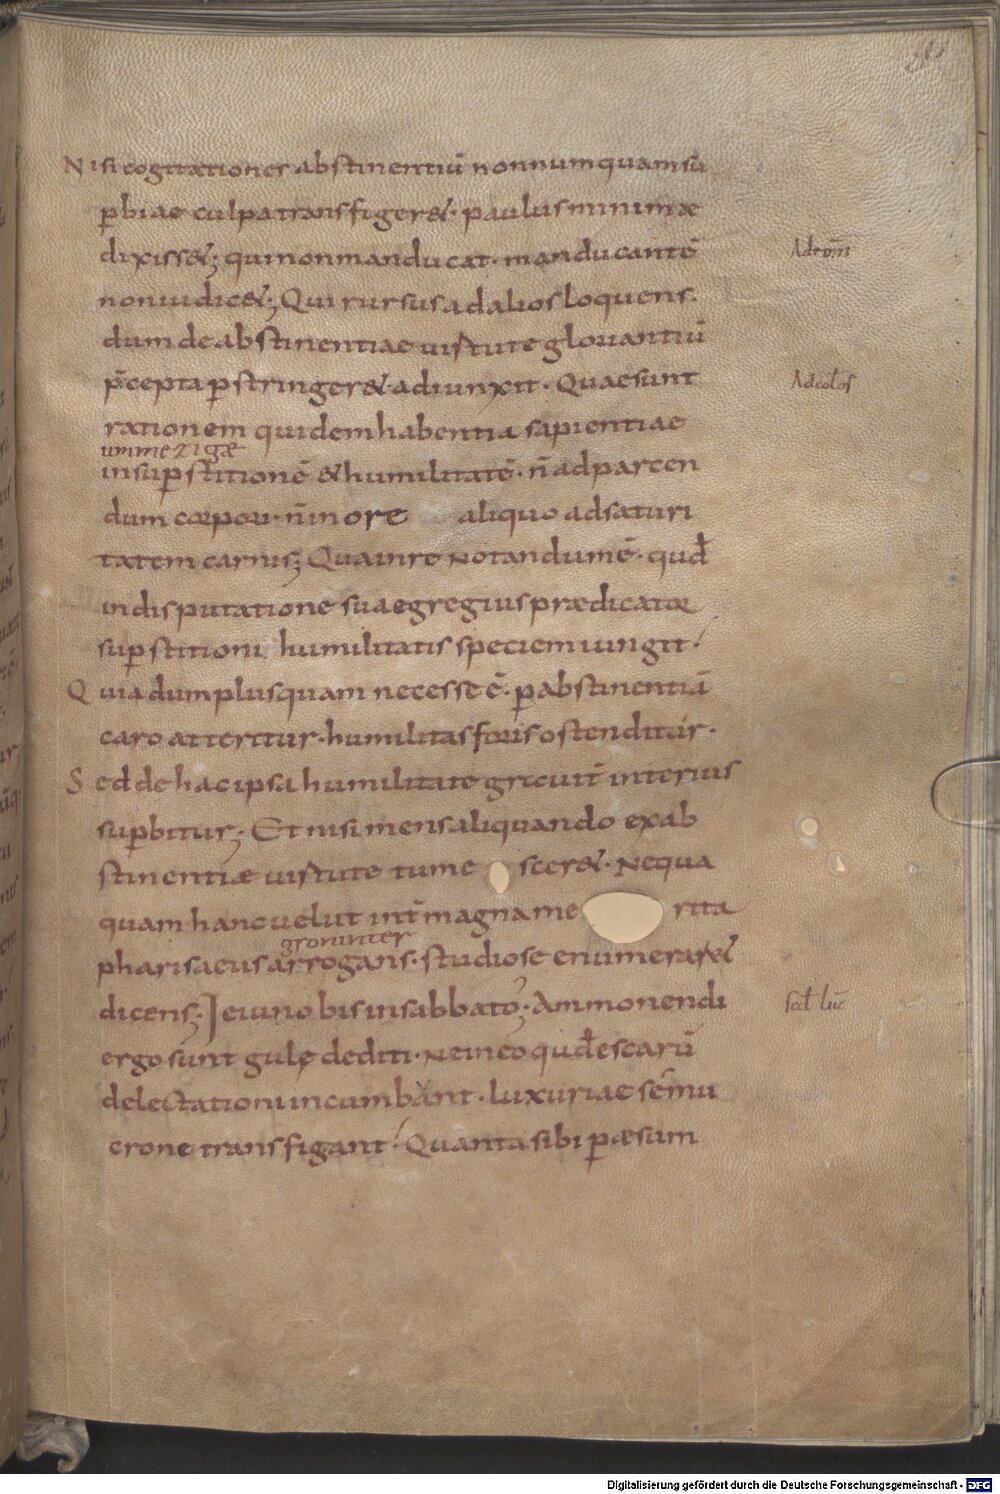 Nisi cogitationes abstinentiū nonnumquam su
ꝑbiae culpa transfiger&. paulus minimæ
dixiss&; qui non manducat. manducantē
Ad rom̄
non iudic&; Qui rursus ad alios loquens.
dum de abstinentiae uirtute gloriantiū
p̄cepta ꝑstringer& adiunxit. Quae sunt
Ad colos
rationem quidem habentia sapientiae
ummezigæ
insuꝑstitionē & humilitatē. n̄ ad parcen
dum corpori. n̄ in ore aliquo ad saturi
tatem carnis; Qua in re Notandum ē. qud̄
in disputatione sua egregius prædicator
suꝑstitioni humilitatis speciem iungit!
Quia dum plus quam necesse ē. ꝑ abstinentiā
caro atteritur. humilitas foris ostenditur.
Sed de hac ipsa humilitate grauit̄ interius
suꝑbitur; Et nisi mens aliquando ex ab
stinentiæ uirtute tume scer&. Nequa
quam hanc uelut int̄ magna me rita
gromnter
pharisaeus arrogans. studiose enumerar&
dicens; Ieiuno bis in sabbato; Ammonendi
scd̄ luc̄
ergo sunt gulę dediti. Ne in eo qud̄ escarū
delectationi incumbant. luxuriae se mu
crone transfigant! Quanta sibi ꝑ æsum
Digitalisierung gefördert durch die Deutsche Forschungsgemeinschaft - DFG